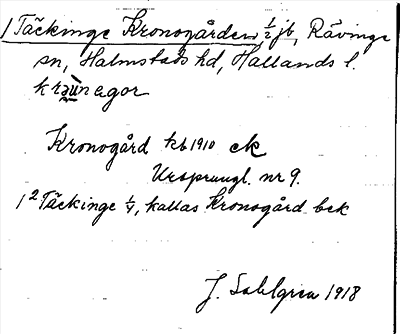 1 Täckinge Kronogården, 1/2 jb, Rävinge
sn, Halmstads hd, Hallands l.
Kronogård kb 1910 ek
Ursprungl. nr 9.
1² Täckinge 1/4, kallas Kronogård bek
J. Sahlgren 1918